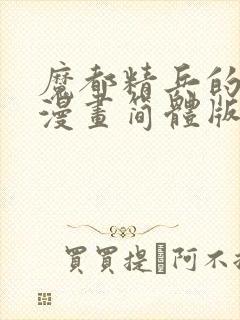 魔都精兵的
漫畫简體版
買買提·阿不